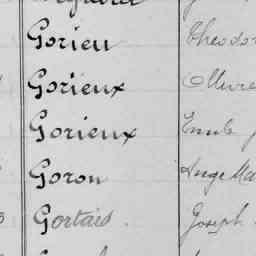 Gorieu Theodor
Gorieux
Gorieux Emile
Goron Ange Ma
Gortais. Joseph